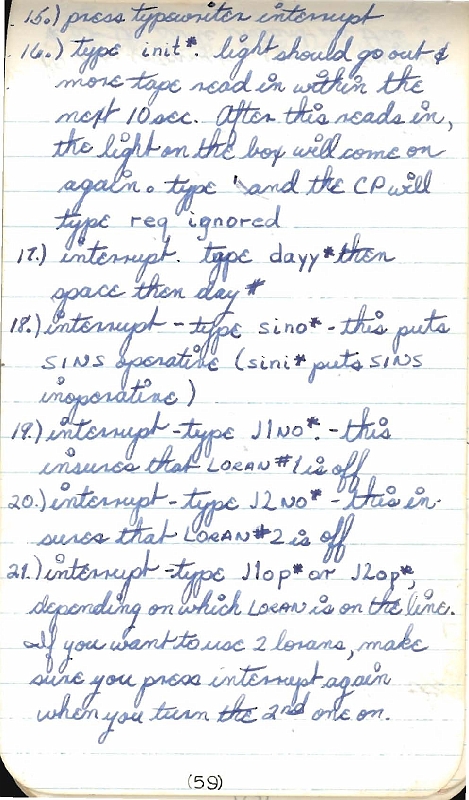 15.) press typewriter interrupt
16.) type init*. light should go out &
more tape read in within the
next 10 sec. After this reads in,
the light on the box will come on
again. type ' and the CP will
type req ignored
17.) interrupt. type dayy* then
space then day*
18.) interrupt - type sino* - this puts
SINS operative (sini* puts SINS
inoperative)
19.) interrupt - type J1NO*. - this
insures that LORAN #1 is off
20.) interrupt - type J2NO* - this in-
sures that LORAN #2 is off
21.) interrupt - type J1op* or J2op*,
depending on which LORAN is on the line.
If you want to use 2 lorans, make
sure you press interrupt again
when you turn the 2nd one on.
(59)